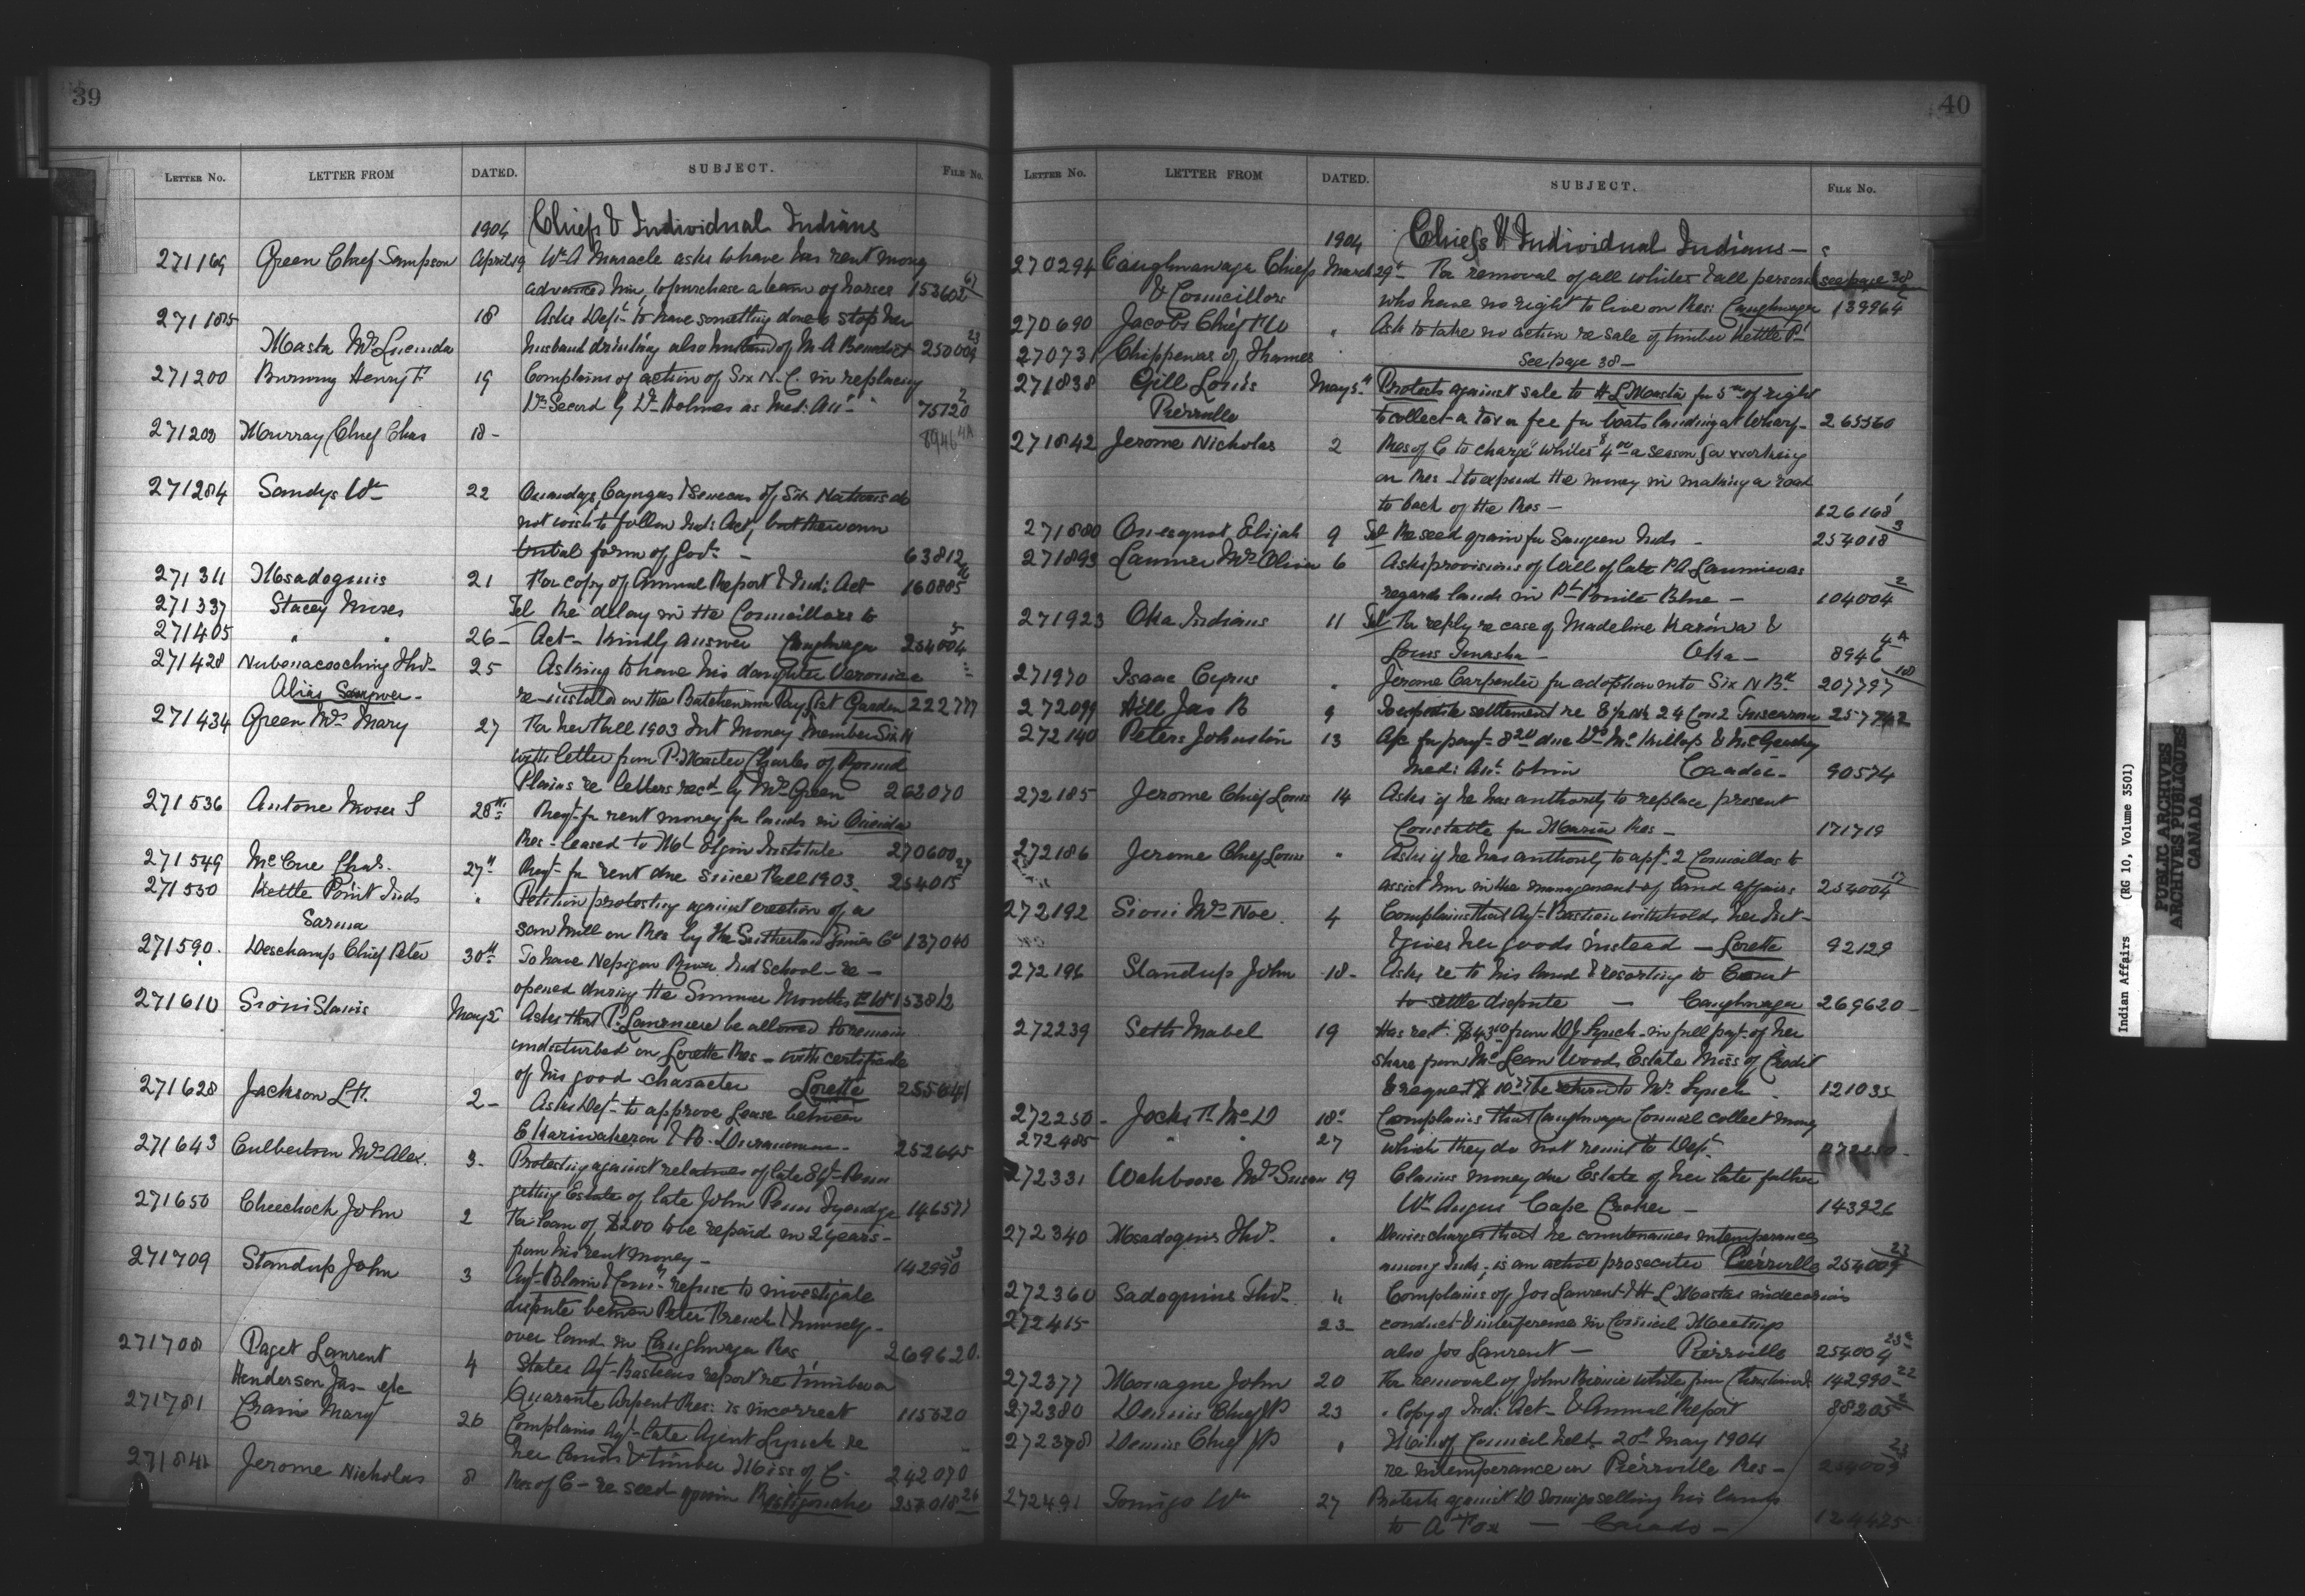 39
LETTER NO. LETTER FROM DATED. SUBJECT. FILE NO.
1904 Chiefs & Individual Indians
271169 Green Chief Sampson April 19 Wm A Maracle asks to have his rent money
advanced him, to purchase a team of horses 153602
271185 18 Asks Dept to have something done to stop her
Masta Mrs Lucinda husband drinking also husband of M A Benedict 250009 23
271200 Burning Henry 19 Complains of action of Six N. C. in replacing
Dr Secord by Dr Holmes as Med: Att 75120 2
271208 Murray Chief Chas 18- 8946 4A
271284 Sandys Wm 22 Onondaga, Cayugas & Senecas of Six Nations do
not wish to follow Ind: Act, but their own
tribal form of Govt - 63812
271311 Msadoquis 21 For copy of Annual Report & Ind: Act 160885
271337 Stacey Moses Tel Re delay in the Councillors to
271405 " " 26- Act - Kindly answer Caughnaga 254004 5
271428 Nubenacooching Thos 25 Asking to have his daughter Veronica
Alias Sampson - re-instated on the Batchewana Pay list Garden 222777
271434 Green Mrs Mary 27 For her Fall 1903 Int Money Member Six N
with letter from P. Master Charles of Round
Plains re letters recd by Mrs Green 262070
271536 Antone Moses S 28th Reqt for rent money for lands in Oneida
Res - leased to Mt Elgin Institute 270600
271549 McCue Chas. 27th Reqt for rent due since Fall 1903 254015 27
271550 Kettle Point Inds " Petition protesting against erection of a
Sarnia saw mill on Res by the Sutherland Innes Co 137040
271590. Deschamp Chief Peter 30th To have Nepigon River Ind School - re -
opened during the Summer Months 153812
271610 Sioui Stanis May 2 Asks that P. Lauriniere be allowed to remain
undisturbed on Lorette Res - with certificate
of his good character Lorette 255641
271628 Jackson L H. 2- Asks Dept to approve Lease between
E Kariwakeron & R.
252645
271643 Culbertson Mrs Alex. 3- Protesting against relatives of late Penn
getting Estate of late John Penn Tyendga 146577
271650 Cheechock John 2 For loan of $200 to be repaid in 2 years -
from his rent money - 142990 3
271709 Standup John 3 Agt Blain & Coun. refuse to investigate
dispute between Peter French & himself -
over land in Caughnwaga Res 269620.
271708 Paget Laurent 4 States Agt Bastien's report re timber on
Henderson Jas - etc Quarante Arpent Res: is incorrect 115620
271781 Crain Mary 26 Complains Agt late Agent Lynch re
her lands & timber Miss of C. 242070
271841 Jerome Nicholas 8 Res of C - re seed grain Restigouche 254018 26
40
LETTER NO. LETTER FROM DATED. SUBJECT. FILE NO.
1904 Chiefs & Individual Indians -
270294 Caughnawaga Chiefs March 29th For removal of all whites & all persons see page 38
& Councillors who have no right to live on Res: Caughnwga 139964
270690 Jacobs Chief " Ask to take no action re sale of timber Kettle Pt
270731 Chippewas of Thames " See page 38 -
271838 Gill Louis May 5th Protests against sale to H L Masta for 5 of right
Pierrville to collect a tax or fee for boats landing at Wharf - 265560
271842 Jerome Nicholas 2 Res of C to charge whites $4.00 a season for working
on Res & to expend the money in making a road
to back of the Res - 126168
271880 Onesquot Elijah 9 Tel Re seed grain for Saugeen Inds - 254018 3
271893 Launier Mrs Olivier 6 Asks provisions of Will of late P A Launier as
regards lands in Pt Pointe Blue - 104004 2
271923 Oka Indians 11 Tel For reply re case of Madeline Kariwa &
Louis - Oka - 8946 4A
271970 Isaac Cyrus " Jerome Carpenter for adoption into Six N Bd 207797 10
272099 Hill Jas B 9 settlement re E 1/2 24 Con 2 Tuscarora 257742
272140 Peters Johnston 13 A/c for payt 8.20 due Drs McKillop & McGeachy
Med: Att to him Caradoc - 90574
272185 Jerome Chief Louis 14 Asks if he has authority to replace present
Constable for Maria Res - 171719
272186 Jerome Chief Louis " Asks if he has authority to appt 2 Councillors to
assist him in the management of land affairs 254004 17
272192 Sioui Mrs Noe. 4 Complains that Agt Bastien withholds her Int -
& gives her goods instead - Lorette 92129
272196 Standup John 18- Asks re to his land & resorting to Court
to settle dispute - Caughnwaga 269620 -
272239 Seth Mabel 19 Has recd $43.10 from D J Lynch in full payt of her
share from McLean Woods Estate Miss of Credit
& request $10 be return to Mr Lynch 121035
272250 - Jocks Th McD 18" Complains that Caughnwaga Council collect money
272485 " " 27 which they do not remit to Dept 272250 -
272331 Wahboose Mrs Susan 19 Claims money due Estate of her late father
Wm Angus Cape Croker - 143926
272340 Msadoquis Thos " Denies charges that he countenances intemperance
among Inds; is an active prosecutor Pierrville 254009 23
272360 Sadoquins Thos " Complains of Jos Laurent & H L Mastas indecorous
272415 23- conduct & interference in Council Meetings
also Jos Laurent - Pierrville 254004 23
272377 Monague John 20 For removal of John Birnie white from Christian Is. 142990 22
272380 Dennis Chief JP 23 " Copy of Ind: Act - & Annual Report 88205 2
272398 Dennis Chief JP " Min of Council held 20th May 1904
re intemperance on Pierrville Res - 254009 23
272491 Tomigo Wm 27 Protests against D Tomigo selling his lands
to A Fox - Carado - 124425
Indian Affairs (RG 10, Volume 3501)
PUBLIC ARCHIVES
ARCHIVES PUBLIQUES
CANADA